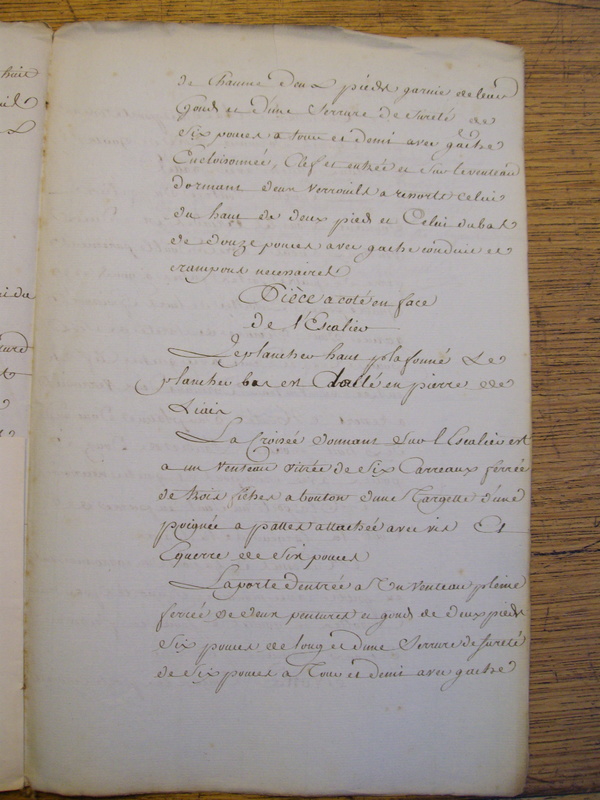 huit
de chacune deux pieds garnie de leurs
Gonds et d'une Serrure de sureté de
Six pouces a tour et demi avec gâche
Encloisonnée, Clef et entrée et Sur le venteau
dormant deux verrouils a resorts celui
du haut de deux pieds et Celui du bas
de douze pouces avec gache conduit et
crampons necessaires
Pièce a coté en face
de l'Escalier
Le plancher haut plafonné Le
plancher bas est dallé en pierre de
Liais
La Croisée donnant Sur l'Escalier est
a un Venteau vitrée de Six Carreaux ferrée
de trois fiches a bouton d'une Targette d'une
poignée a pattes attachée avec vis Et
Equerre de Six pouces
La porte d'entrée a Un Venteau pleine
ferrée de deux pentures et gonds de deux pieds
Six pouces de long et d'une Serrure de sureté
de Six pouces a Tour et demi avec gache